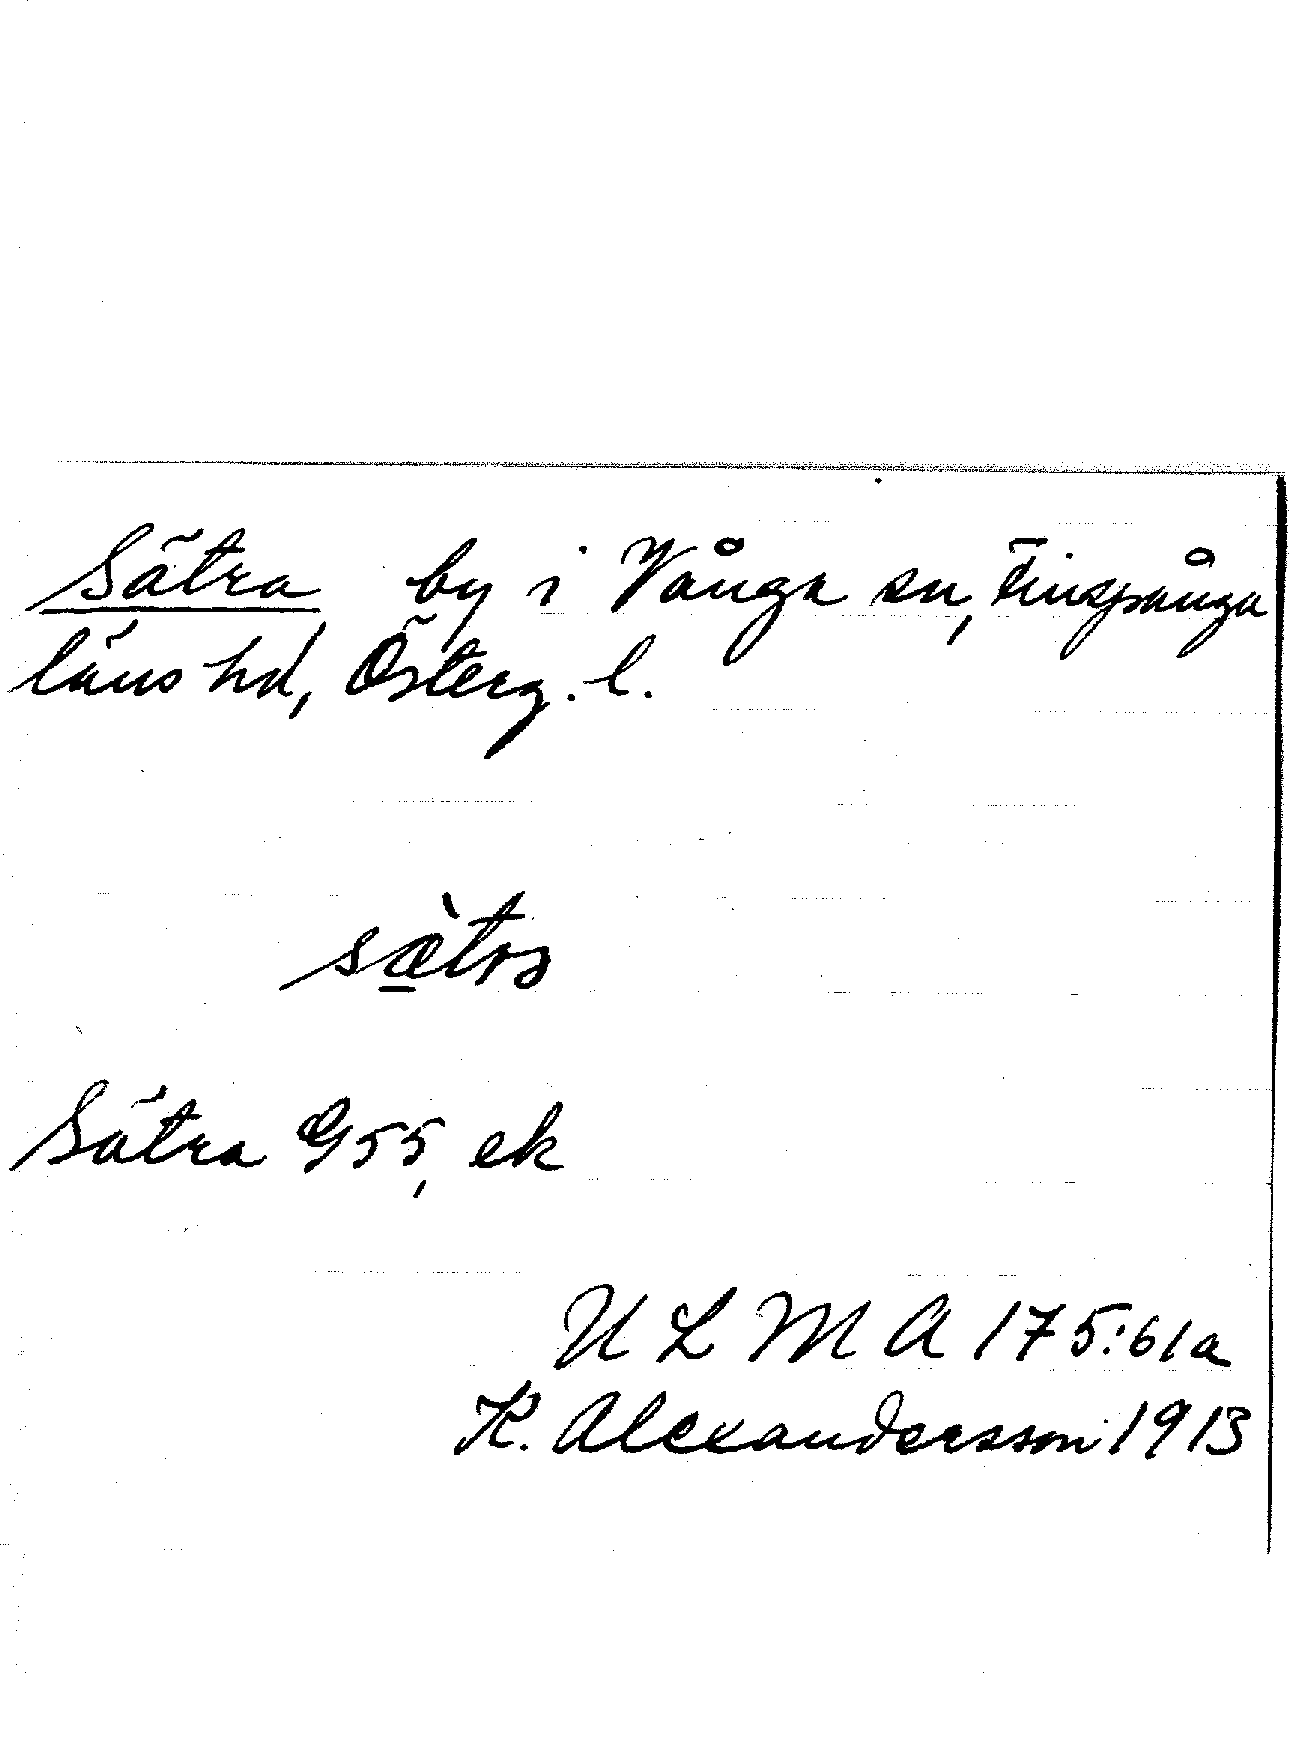 Sätra by i Vånga sn, Finspånga
läns hd, Österg. l.
sæ̱̀trɔ
Sätra G55, ek
ULMA 175:61a
K. Alexandersson 1913